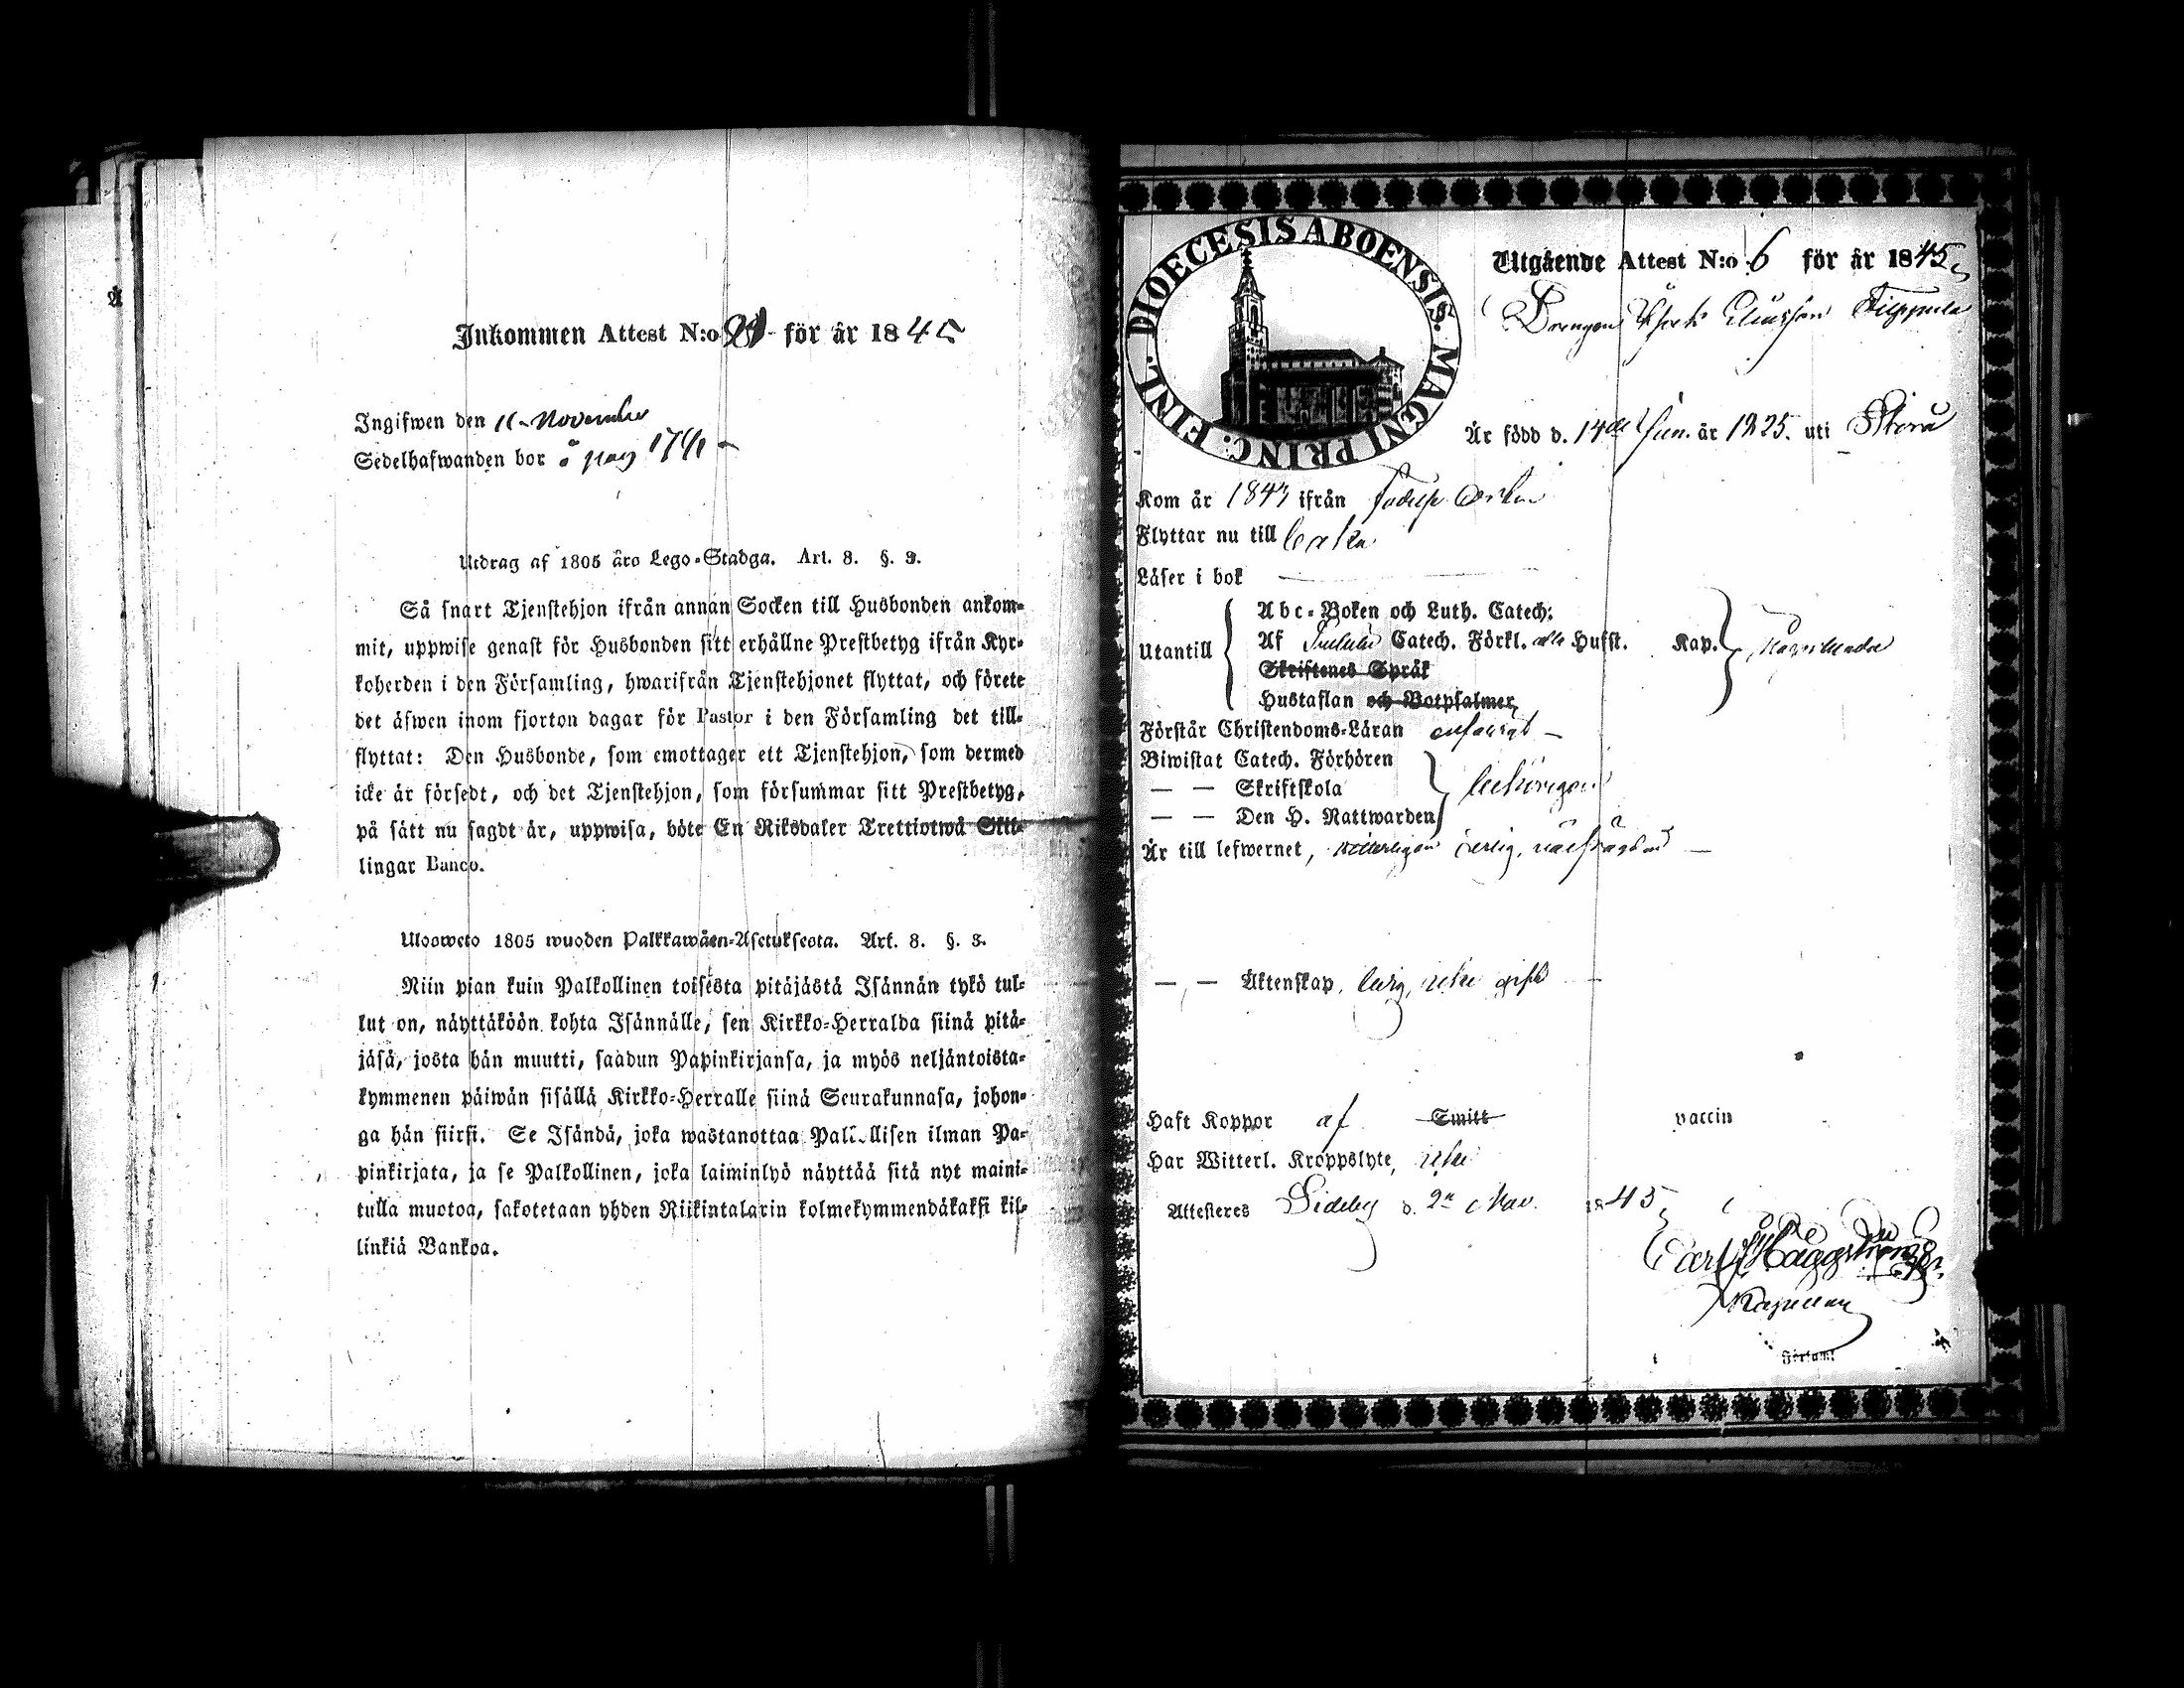 Inkommen Attest N:o för år 1845
Ingifwen den 11 November
Sedelhafwanden bor å pag
Utdrag af 1805 års Lego-Stadga. Art. 8. §. 3.
Så snart Tjenstehjon ifrån annan Socken till Husbonden ankom-
mit, uppwise genast för Husbonden sitt erhållne Prestbetyg ifrån Kyr-
koherden i den Församling, hwarifrån Tjenstehjonet flyttat, och förete
det äfwen inom fjorton dagar för Pastor i den Församling det till-
flyttat: Den Husbonde, som emottager ett Tjenstehjon, som dermed
icke är försedt, och det Tjenstehjon, som försummar sitt Prestbetyg,
på sätt nu sagdt är, uppwisa, böte En Riksdaler Trettiotwå Skil-
lingar Banco.
Uloswets 1805 wuoden Palkkawäen-Asetuksesta. Art. 8. §. 3.
Niin pian kuin Palkollinen toisesta pitäjästä Isännän tykö tul-
lut on, näyttäköön kohta Isännälle, sen Kirkko-Herralda siinä pitä-
jäsä, josta hän muutti, saadun Papinkirjansa, ja myös neljäntoista-
kymmenen päiwän sisällä Kirkko-Herralle siinä Seurakunnasa, johon-
ga hän siirsi. Se Isändä, joka wastanottaa Palkollisen ilman Pa-
pinkirjata, ja se Palkollinen, joka laiminlyö näyttää sitä nyt maini-
tulla muotoa, sakotetaan yhden Riikintalarin kolmekymmendäkaksi kil-
linkiä Bankoa.
DIOECESIS ABOENSIS. MAGNI PRINC: FINL.
Utgående Attest N:o 6 för år 1845
Drengen Filppula
Är född d. 14de Jun. år 1825. uti Storå
Kom år 1843 ifrån Födelse Orten
Flyttar nu till
Läser i bok
Utantill
Abc-Boken och Luth. Catech:
Af Catech. Förkl. alla Hufst. Kap.
Skriftenes Språk
Hustaflan och Botpsalmer
Förstår Christendoms-Läran
Biwistat Catech. Förhören
— — Skriftskola behörigen
— — Den H. Nattwarden
Är till lefwernet, witterligen ärlig, wälfrägdad —
— — Äktenskap, ledig, icke gift —
Haft Koppor af Smitt vaccin
Har Witterl. Kroppslyte, icke
Attesteres Sideby d. 2n Nov. 1845
Carl Häggström
Kapellan
Församl